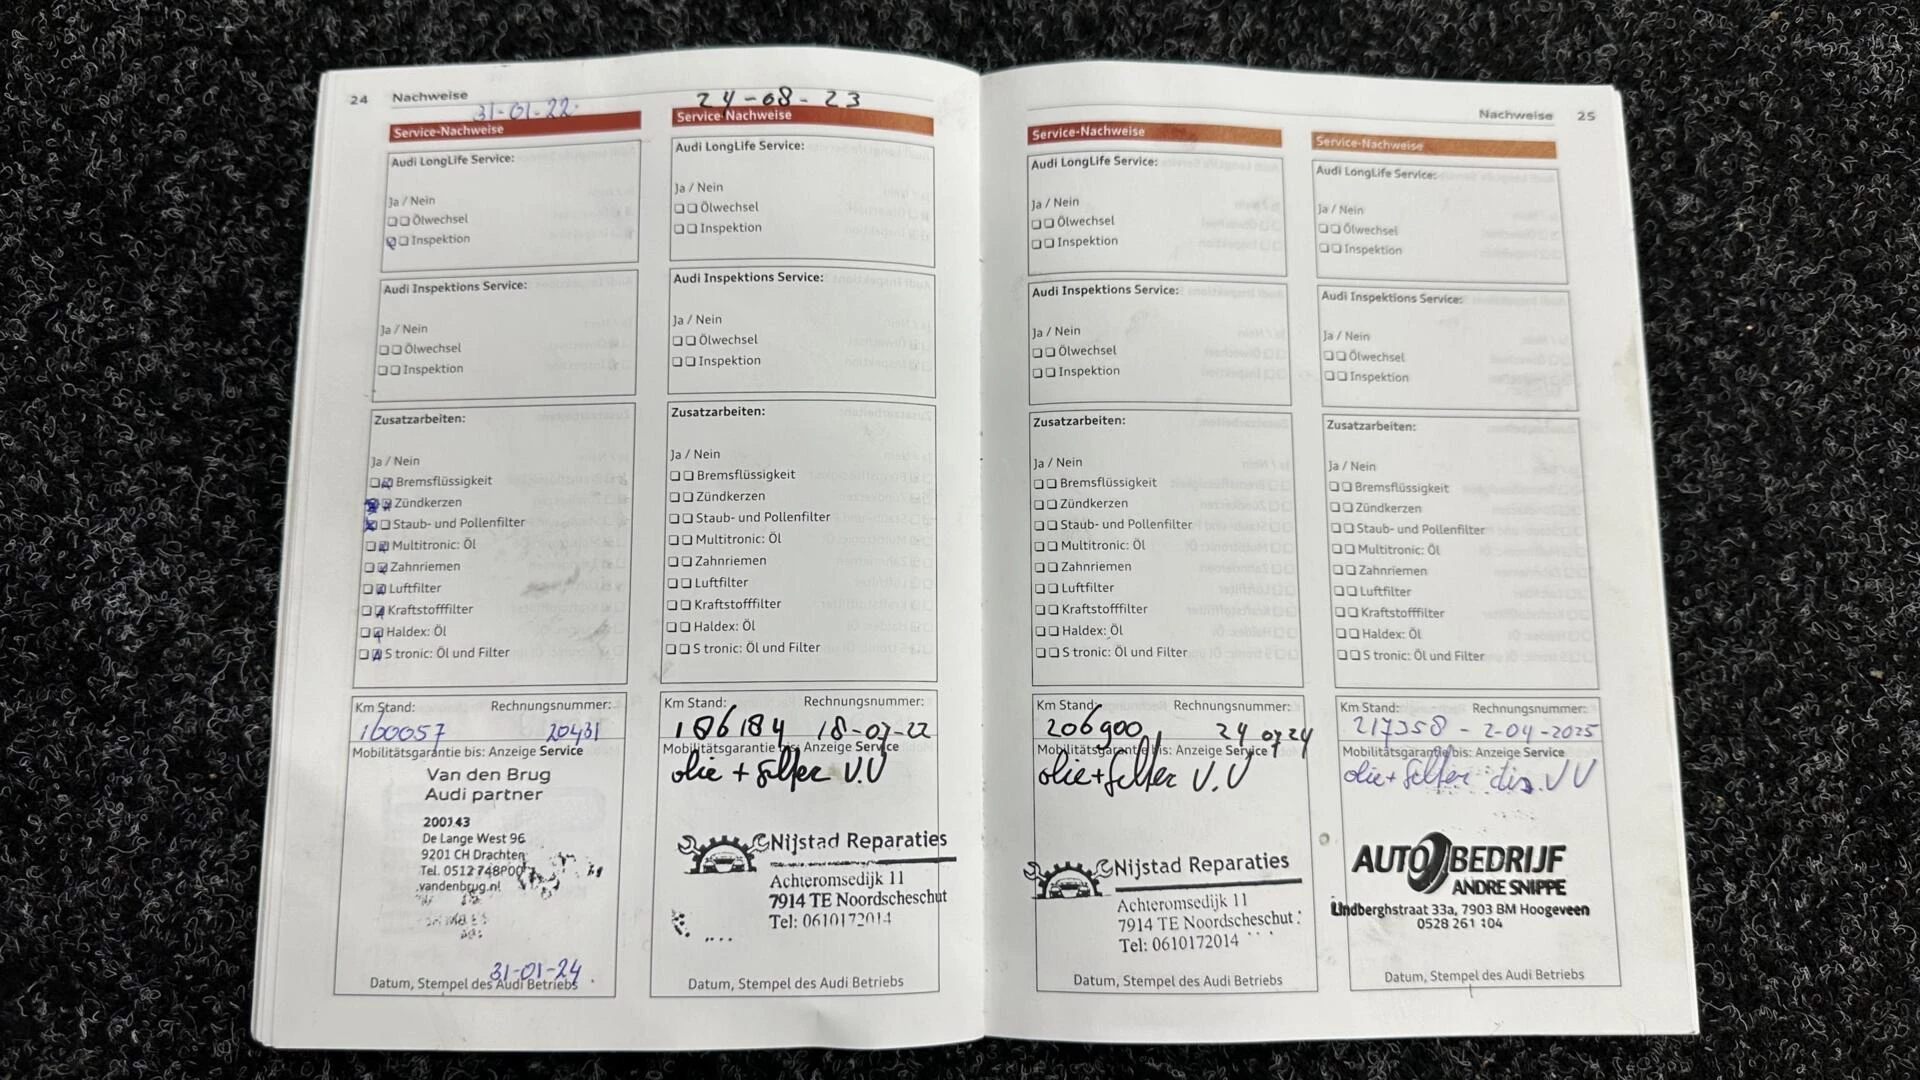 24 Nachweise
31-01-22
Service-Nachweise
Audi LongLife Service:
Ja / Nein
Ölwechsel
Inspektion
Audi Inspektions Service:
Ja / Nein
Ölwechsel
Inspektion
Zusatzarbeiten:
Ja / Nein
Bremsflüssigkeit
Zündkerzen
Staub- und Pollenfilter
Multitronic: Öl
Zahnriemen
Luftfilter
Kraftstofffilter
Haldex: Öl
S tronic: Öl und Filter
Km Stand: Rechnungsnummer:
160057 20431
Mobilitätsgarantie bis: Anzeige Service
Van den Brug
Audi partner
200143
De Lange West 96
9201 CH Drachten
Tel. 0512 748900
vandenbrug.nl
31-01-24
Datum, Stempel des Audi Betriebs
24-08-23
Service-Nachweise
Audi LongLife Service:
Ja / Nein
Ölwechsel
Inspektion
Audi Inspektions Service:
Ja / Nein
Ölwechsel
Inspektion
Zusatzarbeiten:
Ja / Nein
Bremsflüssigkeit
Zündkerzen
Staub- und Pollenfilter
Multitronic: Öl
Zahnriemen
Luftfilter
Kraftstofffilter
Haldex: Öl
S tronic: Öl und Filter
Km Stand: Rechnungsnummer:
186184 18-07-22
Mobilitätsgarantie bis: Anzeige Service
olie + filter V.V
Nijstad Reparaties
Achteromsedijk 11
7914 TE Noordscheschut
Tel: 0610172014
Datum, Stempel des Audi Betriebs
Nachweise 25
Service-Nachweise
Audi LongLife Service:
Ja / Nein
Ölwechsel
Inspektion
Audi Inspektions Service:
Ja / Nein
Ölwechsel
Inspektion
Zusatzarbeiten:
Ja / Nein
Bremsflüssigkeit
Zündkerzen
Staub- und Pollenfilter
Multitronic: Öl
Zahnriemen
Luftfilter
Kraftstofffilter
Haldex: Öl
S tronic: Öl und Filter
Km Stand: Rechnungsnummer:
206900 24 07 24
Mobilitätsgarantie bis: Anzeige Service
olie + filter V.V
Nijstad Reparaties
Achteromsedijk 11
7914 TE Noordscheschut
Tel: 0610172014
Datum, Stempel des Audi Betriebs
Service-Nachweise
Audi LongLife Service:
Ja / Nein
Ölwechsel
Inspektion
Audi Inspektions Service:
Ja / Nein
Ölwechsel
Inspektion
Zusatzarbeiten:
Ja / Nein
Bremsflüssigkeit
Zündkerzen
Staub- und Pollenfilter
Multitronic: Öl
Zahnriemen
Luftfilter
Kraftstofffilter
Haldex: Öl
S tronic: Öl und Filter
Km Stand: Rechnungsnummer:
217358 - 2-04-2025
Mobilitätsgarantie bis: Anzeige Service
olie + filter dis. VV
AUTOBEDRIJF
ANDRE SNIPPE
Lindberghstraat 33a, 7903 BM Hoogeveen
0528 261 104
Datum, Stempel des Audi Betriebs